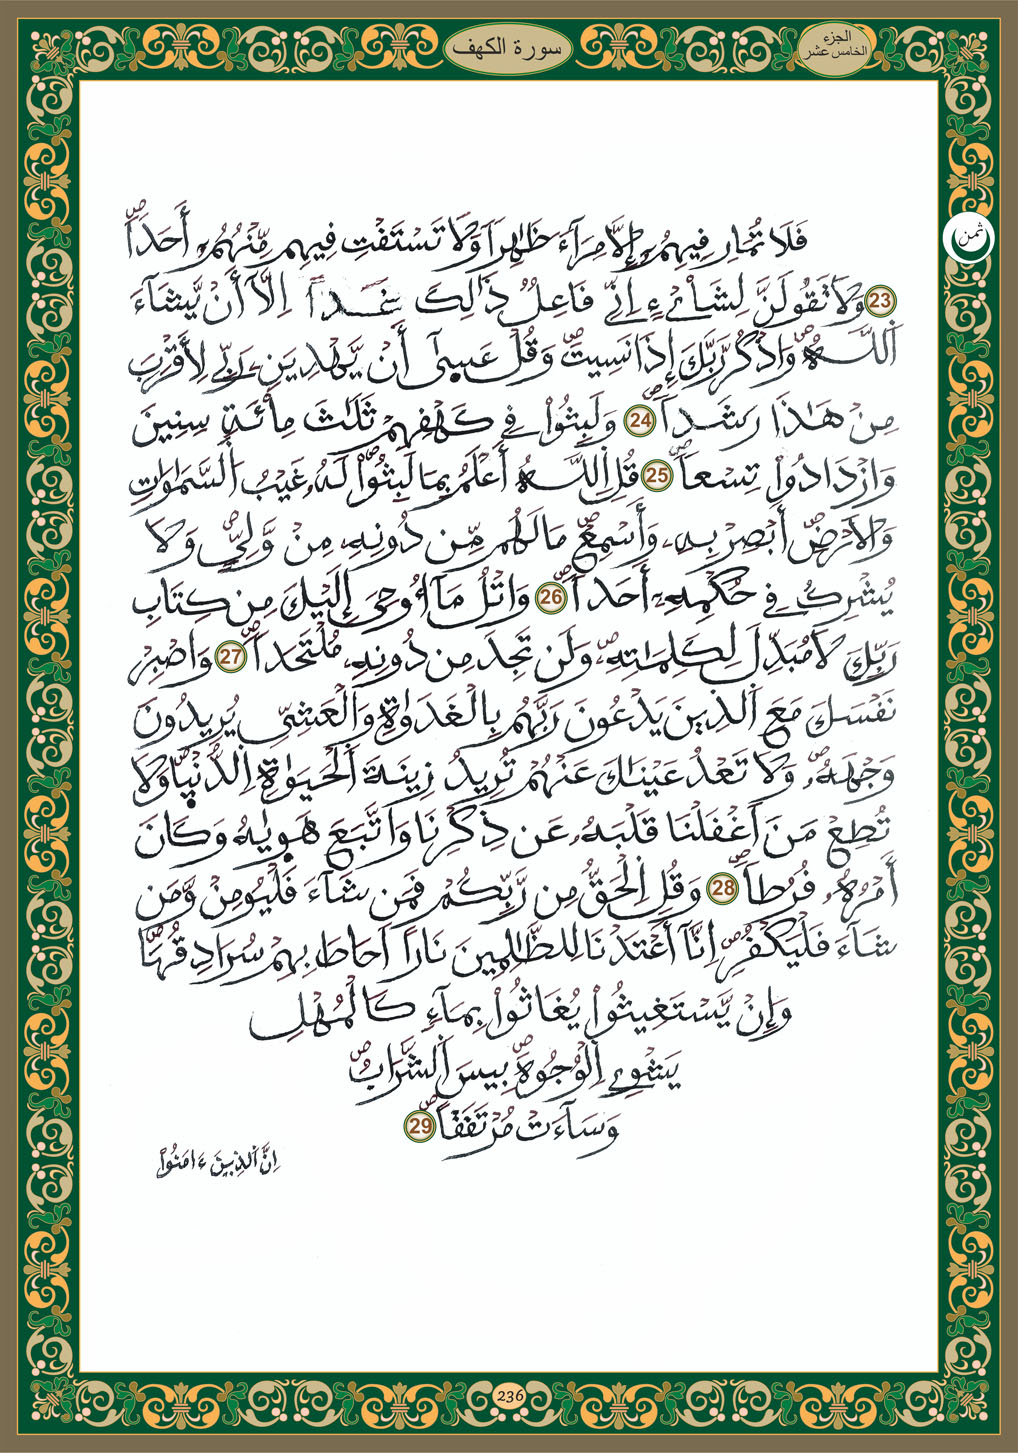 سورة الكهف
الجزء
الخامس عشر
ثمن
فَلَا تُمَارِ فِيهِمُۥٓ إِلَّا مِرَآءٗ ظَٰهِراٗ وَلَا تَسْتَفْتِ فِيهِم مِّنْهُمُۥٓ أَحَداٗۖ
23 وَلَا تَقُولَنَّ لِشَاْےْءٍ اِنِّے فَاعِلٞ ذَٰلِكَ غَداً اِلَّآ أَنْ يَّشَآءَ
اَ۬للَّهُۖ وَاذْكُر رَّبَّكَ إِذَا نَسِيتَۖ وَقُلْ عَس۪ىٰٓ أَنْ يَّهْدِيَنِۦ رَبِّے لِأَقْرَبَ
مِنْ هَٰذَا رَشَداٗۖ 24 وَلَبِثُواْ فِے كَهْفِهِمْ ثَلَٰثَ مِاْئَةٖ سِنِينَ
وَازْدَادُواْ تِسْعاٗۖ 25 قُلِ اِ۬للَّهُ أَعْلَمُ بِمَا لَبِثُواْۖ لَهُۥ غَيْبُ اُ۬لسَّمَٰوَٰتِ
وَالَارْضِۖ أَبْصِرْ بِهِۦ وَأَسْمِعْۖ مَا لَهُم مِّن دُونِهِۦ مِنْ وَّلِيّٖۖ وَلَا
يُشْرِكُ فِے حُكْمِهِۦٓ أَحَداٗۖ 26 وَاتْلُ مَآ أُوحِيَ إِلَيْكَ مِن كِتَابِ
رَبِّكَ لَا مُبَدِّلَ لِكَلِمَٰتِهِۦۖ وَلَن تَجِدَ مِن دُونِهِۦ مُلْتَحَداٗۖ 27 وَاصْبِرْ
نَفْسَكَ مَعَ اَ۬لذِينَ يَدْعُونَ رَبَّهُم بِالْغَدَوٰةِ وَالْعَشِيِّ يُرِيدُونَ
وَجْهَهُۥۖ وَلَا تَعْدُ عَيْنَٰكَ عَنْهُمْ تُرِيدُ زِينَةَ اَ۬لْحَيَوٰةِ اِ۬لدُّنْي۪اۖ وَلَا
تُطِعْ مَنَ اَغْفَلْنَا قَلْبَهُۥ عَن ذِكْرِنَا وَاتَّبَعَ هَو۪يٰهُ وَكَانَ
أَمْرُهُۥ فُرُطاٗۖ 28 وَقُلِ اِ۬لْحَقُّ مِن رَّبِّكُمْ فَمَن شَآءَ فَلْيُومِنْ وَّمَن
شَآءَ فَلْيَكْفُرِۖ اِنَّآ أَعْتَدْنَا لِلظَّٰلِمِينَ نَاراً اَحَاطَ بِهِمْ سُرَادِقُهَاۖ
وَإِنْ يَّسْتَغِيثُواْ يُغَاثُواْ بِمَآءٖ كَالْمُهْلِ
يَشْوِے اِ۬لْوُجُوهَۖ بِيسَ اَ۬لشَّرَابُۖ
وَسَآءَتْ مُرْتَفَقاًۖ 29
اِنَّ اَ۬لذِينَ ءَامَنُواْ
236